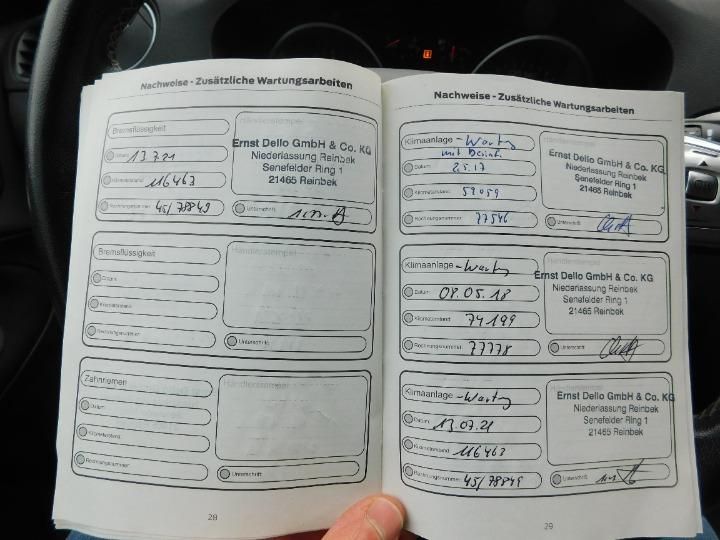 Nachweise - Zusätzliche Wartungsarbeiten
Bremsflüssigkeit
Händlerstempel
Datum: 13.7.21
Kilometerstand: 116463
Rechnungsnummer: 45/78849
Ernst Dello GmbH & Co. KG
Niederlassung Reinbek
Senefelder Ring 1
21465 Reinbek
Unterschrift:
Bremsflüssigkeit
Händlerstempel
Datum:
Kilometerstand:
Rechnungsnummer:
Unterschrift:
Zahnriemen
Händlerstempel
Datum:
Kilometerstand:
Rechnungsnummer:
Unterschrift:
28
Nachweise - Zusätzliche Wartungsarbeiten
Klimaanlage - Wartg
mit
Datum:
Kilometerstand: 59059
Rechnungsnummer: 77546
Händlerstempel
Ernst Dello GmbH & Co. KG
Niederlassung Reinbek
Senefelder Ring 1
21465 Reinbek
Unterschrift:
Klimaanlage - Wartg
Datum: 08.05.18
Kilometerstand: 74199
Rechnungsnummer: 77778
Händlerstempel
Ernst Dello GmbH & Co. KG
Niederlassung Reinbek
Senefelder Ring 1
21465 Reinbek
Unterschrift:
Klimaanlage - Wartg
Datum: 13.07.21
Kilometerstand: 116463
Rechnungsnummer: 45/78849
Händlerstempel
Ernst Dello GmbH & Co. KG
Niederlassung Reinbek
Senefelder Ring 1
21465 Reinbek
Unterschrift:
29